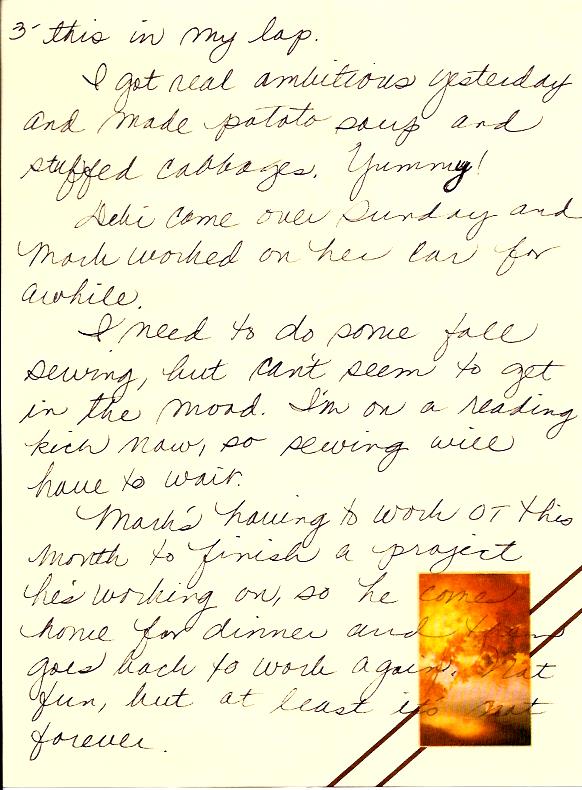 3- this in my lap.
I got real ambitious yesterday
and made potato soup and
stuffed cabbages. Yummy!
Debi came over Sunday and
Mark worked on her car for
awhile.
I need to do some fall
sewing, but can't seem to get
in the mood. I'm on a reading
kick now, so sewing will
have to wait.
Mark's having to work OT this
month to finish a project
he's working on, so he come
home for dinner and then
goes back to work again. Not
fun, but at least it's not
forever.